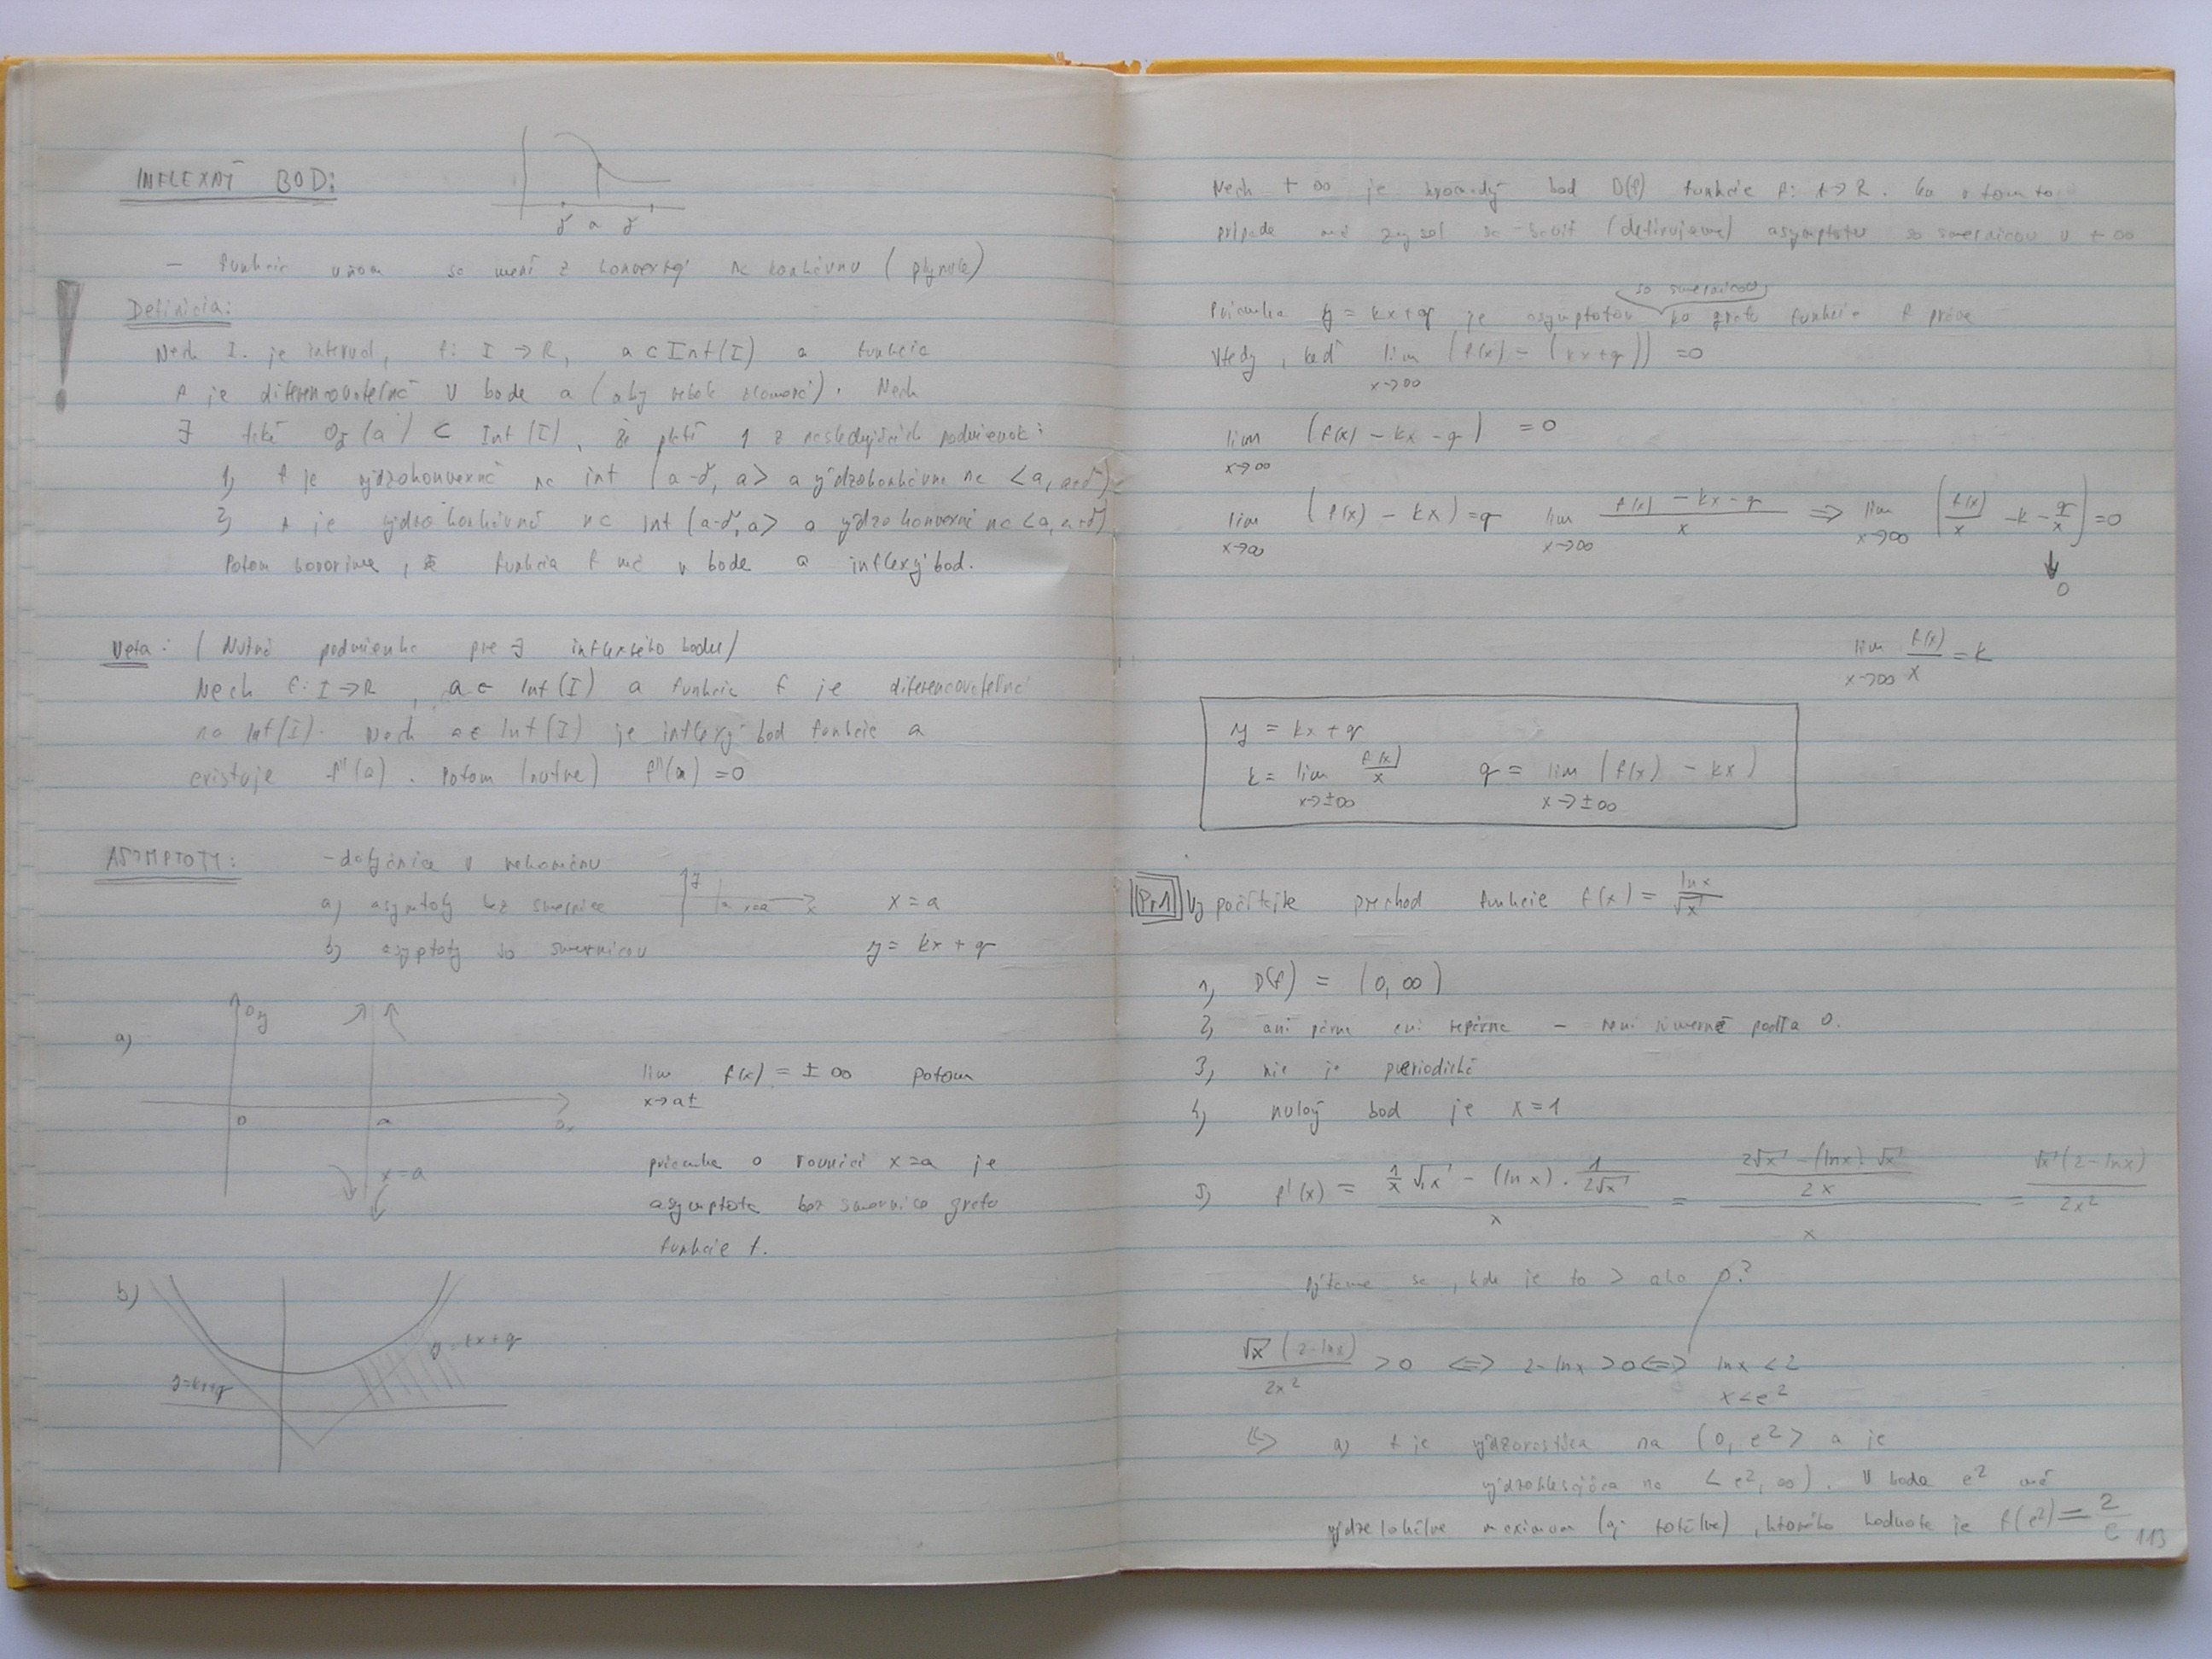 INFLEXNÝ BOD:
δ a δ
- funkcia v ňom sa mení z konvexnej na konkávnu (plynule)
Definícia:
Nech I. je interval, f: I → R, a ∈ Int(I) a funkcia
f je diferencovateľná v bode a (aby nebola zlomová). Nech
∃ také Oδ(a) ⊂ Int(I), že platí 1 z nasledujúcich podmienok:
1, f je rýdzokonvexná na int (a-δ, a> a rýdzokonkávna na <a, a+δ)
2, f je rýdzo konkávná na int (a-δ, a> a rýdzo konvexná na <a, a+δ)
Potom hovoríme, že funkcia f má v bode a inflexný bod.
Veta: (Nutná podmienka pre ∃ inflexného bodu)
Nech f: I → R, a ∈ Int(I) a funkcia f je diferencovateľná
na Int(I). Nech a ∈ Int(I) je inflexný bod funkcie a
existuje f''(a). Potom (nutne) f''(a) = 0
ASYMPTOTY: - dotyčnica v nekonečnu
a) asymtoty bez smernice x = a
b) asyptoty so smernicou y = kx + q
a) 0y
0 a 0x
x = a
lim f(x) = ± ∞ potom
x→a±
priamka o rovnici x=a je
asymptota bez smernice grafu
funkcie f.
b)
y=kx+q
y=kx+q
Nech + ∞ je hromadný bod D(f) funkcie f: A → R. v tomto
prípade má zmysel (definujeme) asymptotu so smernicou v + ∞
so smernicou
Priamka y = kx+q je asymptotou ku grafu funkcie f práve
vtedy, keď lim (f(x) - (kx+q)) = 0
x→∞
lim (f(x) - kx - q) = 0
x→∞
lim (f(x) - kx) = q lim f(x) - kx - q / x ⇒ lim (f(x)/x - k - q/x) = 0
x→∞ x→∞ x→∞
↓
0
lim f(x)/x = k
x→∞
y = kx + q
k = lim f(x)/x q = lim (f(x) - kx)
x→±∞ x→±∞
Pr1 Vypočítajte priechod funkcie f(x) = ln x/√x
1, D(f) = (0, ∞)
2, ani párna ani nepárna - není súmerné podľa 0.
3, nie je periodická
4, nulový bod je x = 1
5, f'(x) = (1/x √x - (ln x) . 1/2√x) / x = ((2√x - (ln x) √x) / 2x) / x = √x (2 - ln x) / 2x²
Pýtame sa, kde je to > ako 0?
√x (2 - ln x) / 2x² > 0 ⇔ 2 - ln x > 0 ⇔ ln x < 2
x < e²
⇔ a) f je rýdzorastúca na (0, e²> a je
rýdzoklesajúca na <e², ∞). V bode e² má
rýdze lokálne maximum (aj totálne), ktorého hodnota je f(e²) = 2/e
113